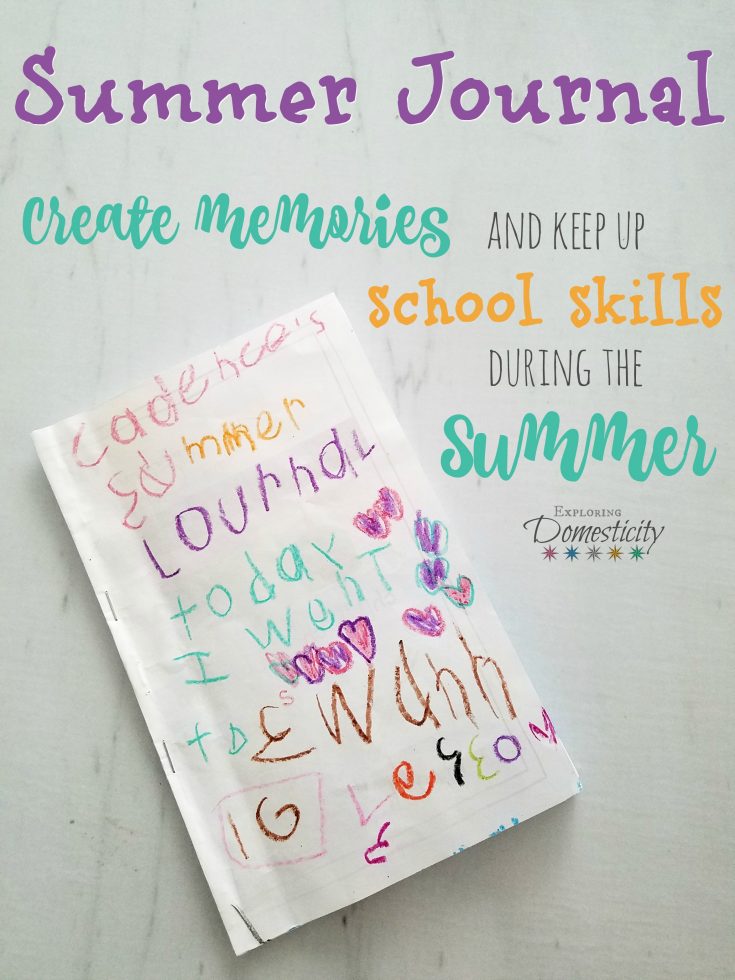 Summer Journal
create memories AND KEEP UP
school skills
DURING THE
summer
EXPLORING
Domesticity
Cadence's
Summer
JOUrNaL
today
I WeNT
to
IG